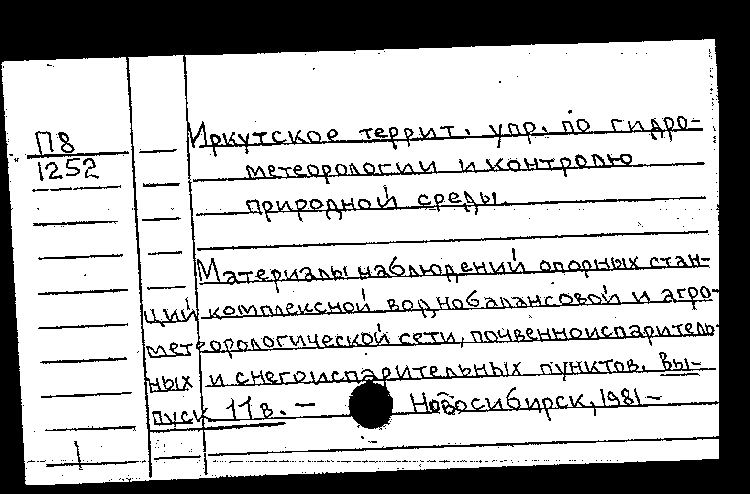 П8
1252
Иркутское террит. упр. по гидро-
метеорологии и контролю
природной среды.
Материалы наблюдений опорных стан-
ций комплексной воднобалансовой и агро-
метеорологической сети, почвенноиспаритель-
ных и снегоиспарительных пунктов. Вы-
пуск 11в. — Новосибирск, 1981 —